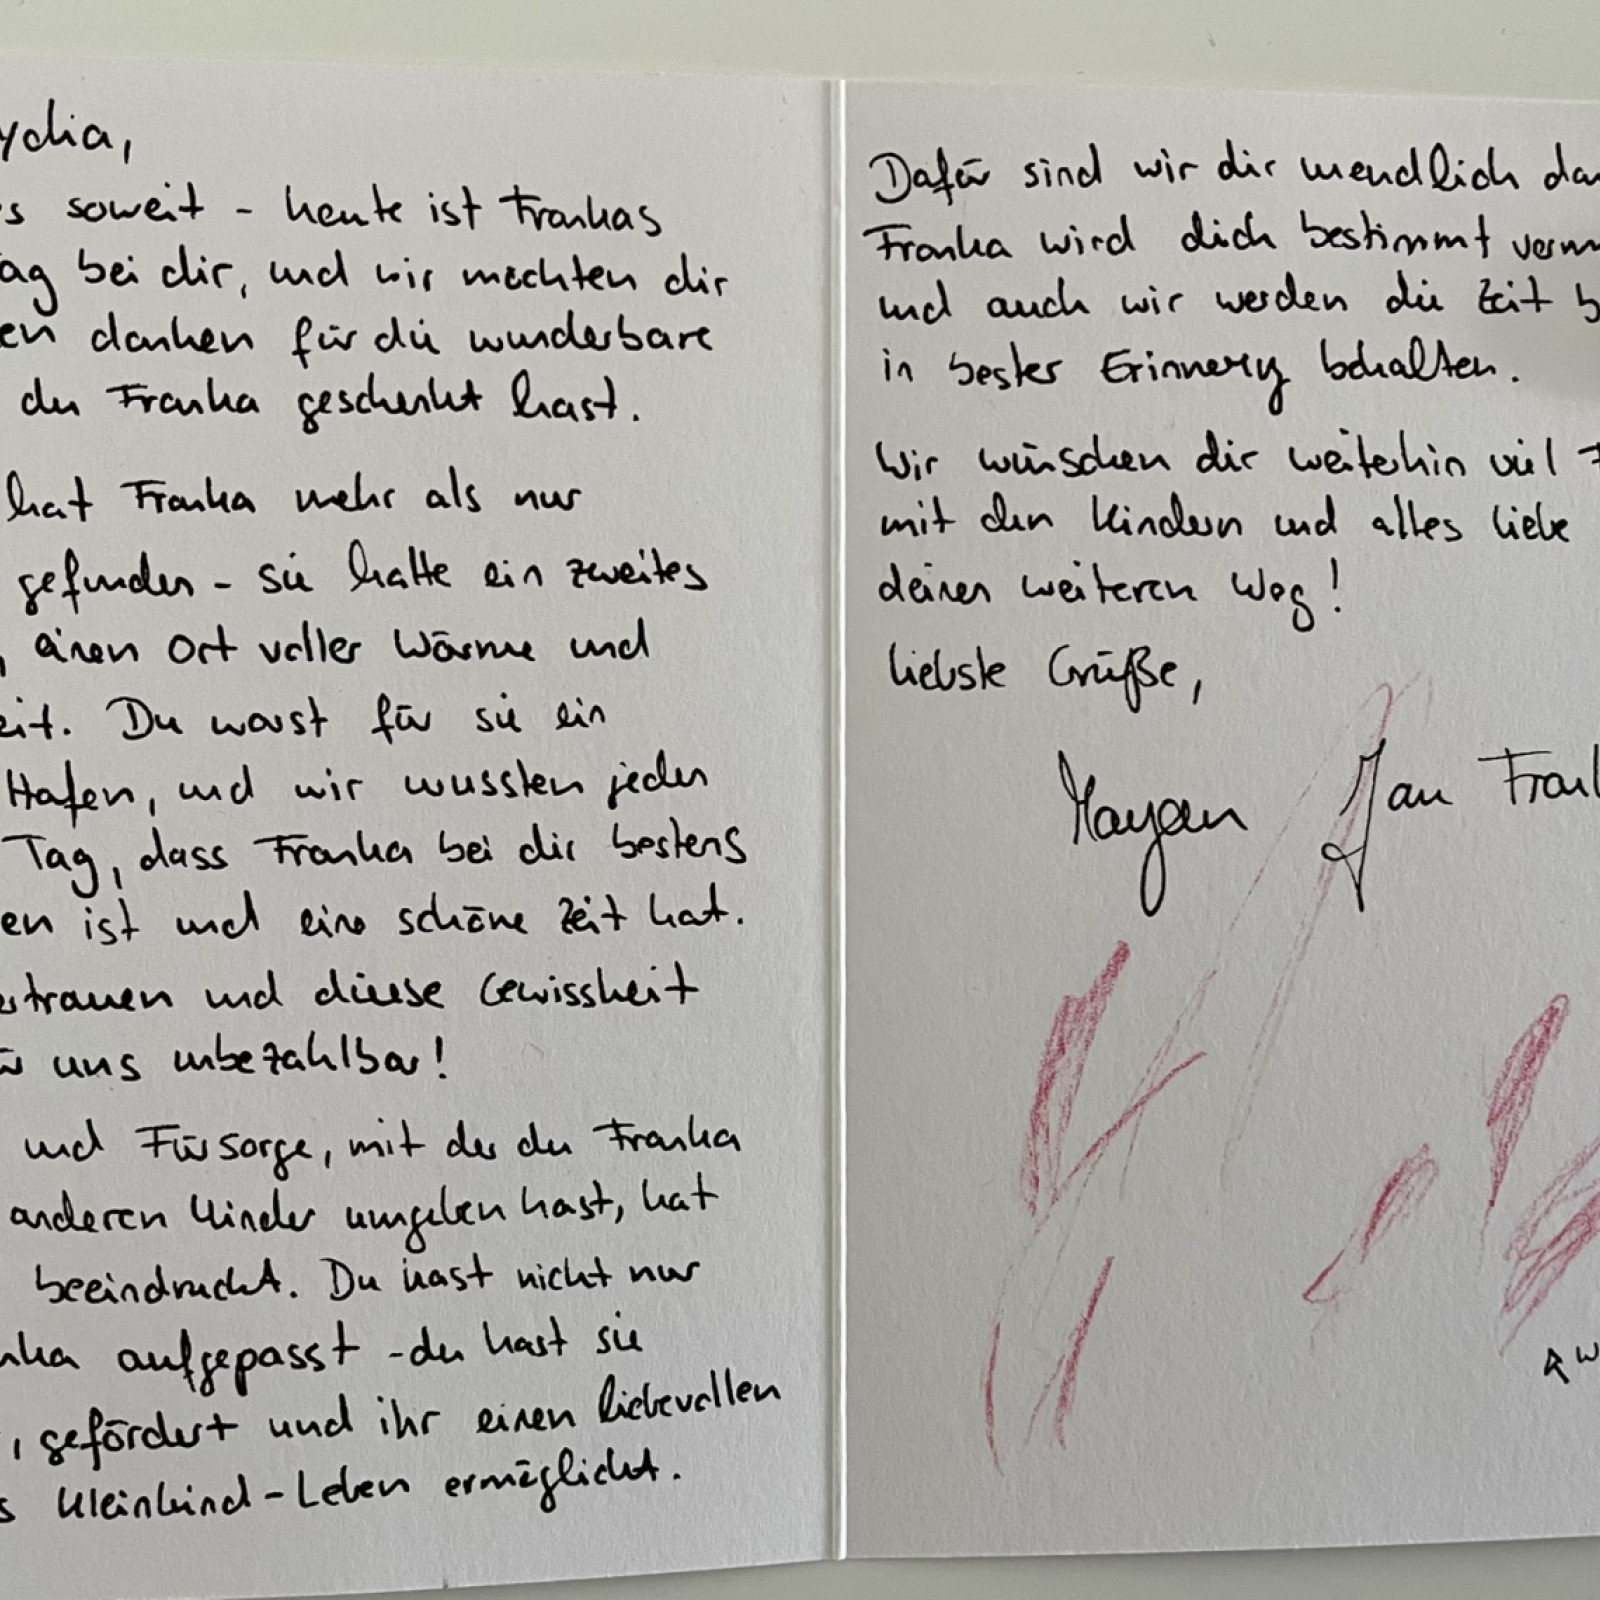 ydia,
s soweit - heute ist Frankas
ag bei dir, und wir möchten dir
en danken für die wunderbare
du Franka geschenkt hast.
hat Franka mehr als nur
gefunden - sie hatte ein zweites
, einen Ort voller Wärme und
eit. Du warst für sie ein
Hafen, und wir wussten jeden
Tag, dass Franka bei dir bestens
en ist und eine schöne Zeit hat.
ertrauen und diese Gewissheit
ür uns unbezahlbar!
und Fürsorge, mit der du Franka
anderen Kinder umgeben hast, hat
beeindruckt. Du hast nicht nur
nka aufgepasst - du hast sie
, gefördert und ihr einen liebevollen
s Kleinkind-Leben ermöglicht.
Dafür sind wir dir unendlich da
Franka wird dich bestimmt verm
und auch wir werden die Zeit b
in bester Erinnerung behalten.
Wir wünschen dir weiterhin viel F
mit den Kindern und alles liebe
deinen weiteren Weg!
liebste Grüße,
Jan Frank